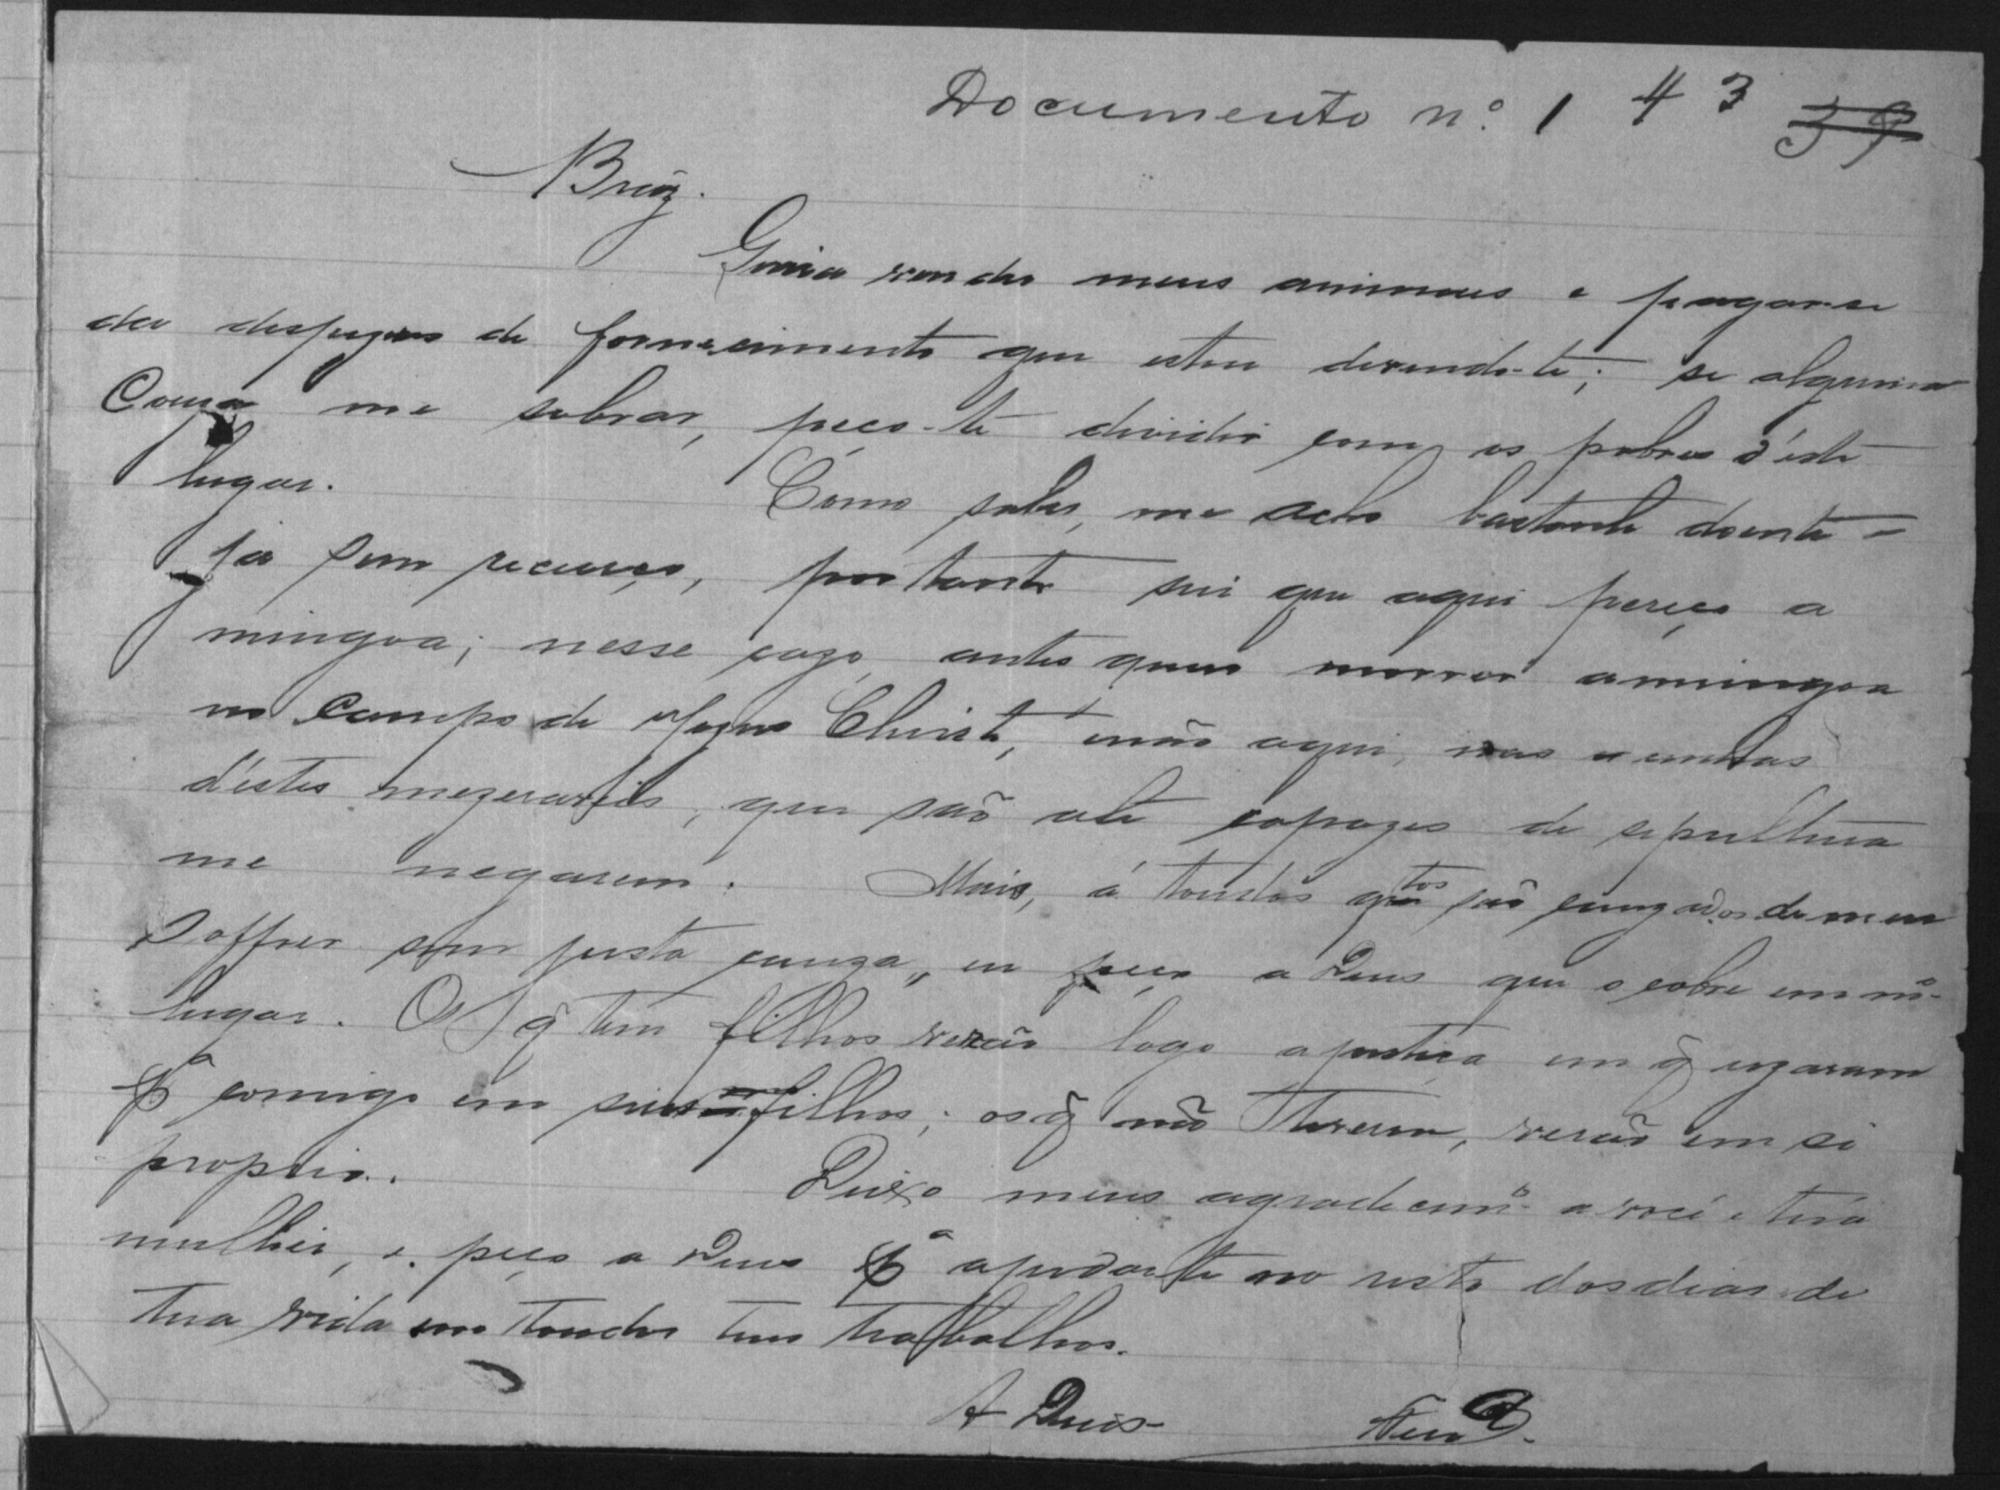 Documento nº 1 43 39
Braz.
venda meus animaes e pagar-se
das despezas de fornecimento que estou devendo-te; se alguma
Couza me sobrar, peço-te dividir com os pobres d'este
lugar. Como sabes, me acho bastante doente e
já sem recurço, portanto sei que aqui pereço a
mingoa; nesse cazo, antes quero morrer amingoa
no Campo de Jezus Christo, e não aqui, nas unhas
d'estes mezeraveis, que são até capazes de sepultura
me negarem. Mais, á toudos qtos são cauzadores de meu
Soffrer sem justa cauza, eu peço a Deus que o cobre em mº
lugar. Os q̃ tem filhos verão logo a justiça em q̃ uzaram
pª comigo em seus filhos; os q̃ não tiverem, verão em si
proprio. Deixo meus agradecimº a você e tua
mulher, e peço a Deus pª ajudar-te no resto dos dias de
tua vida em toudos teus trabalhos.
A Deus